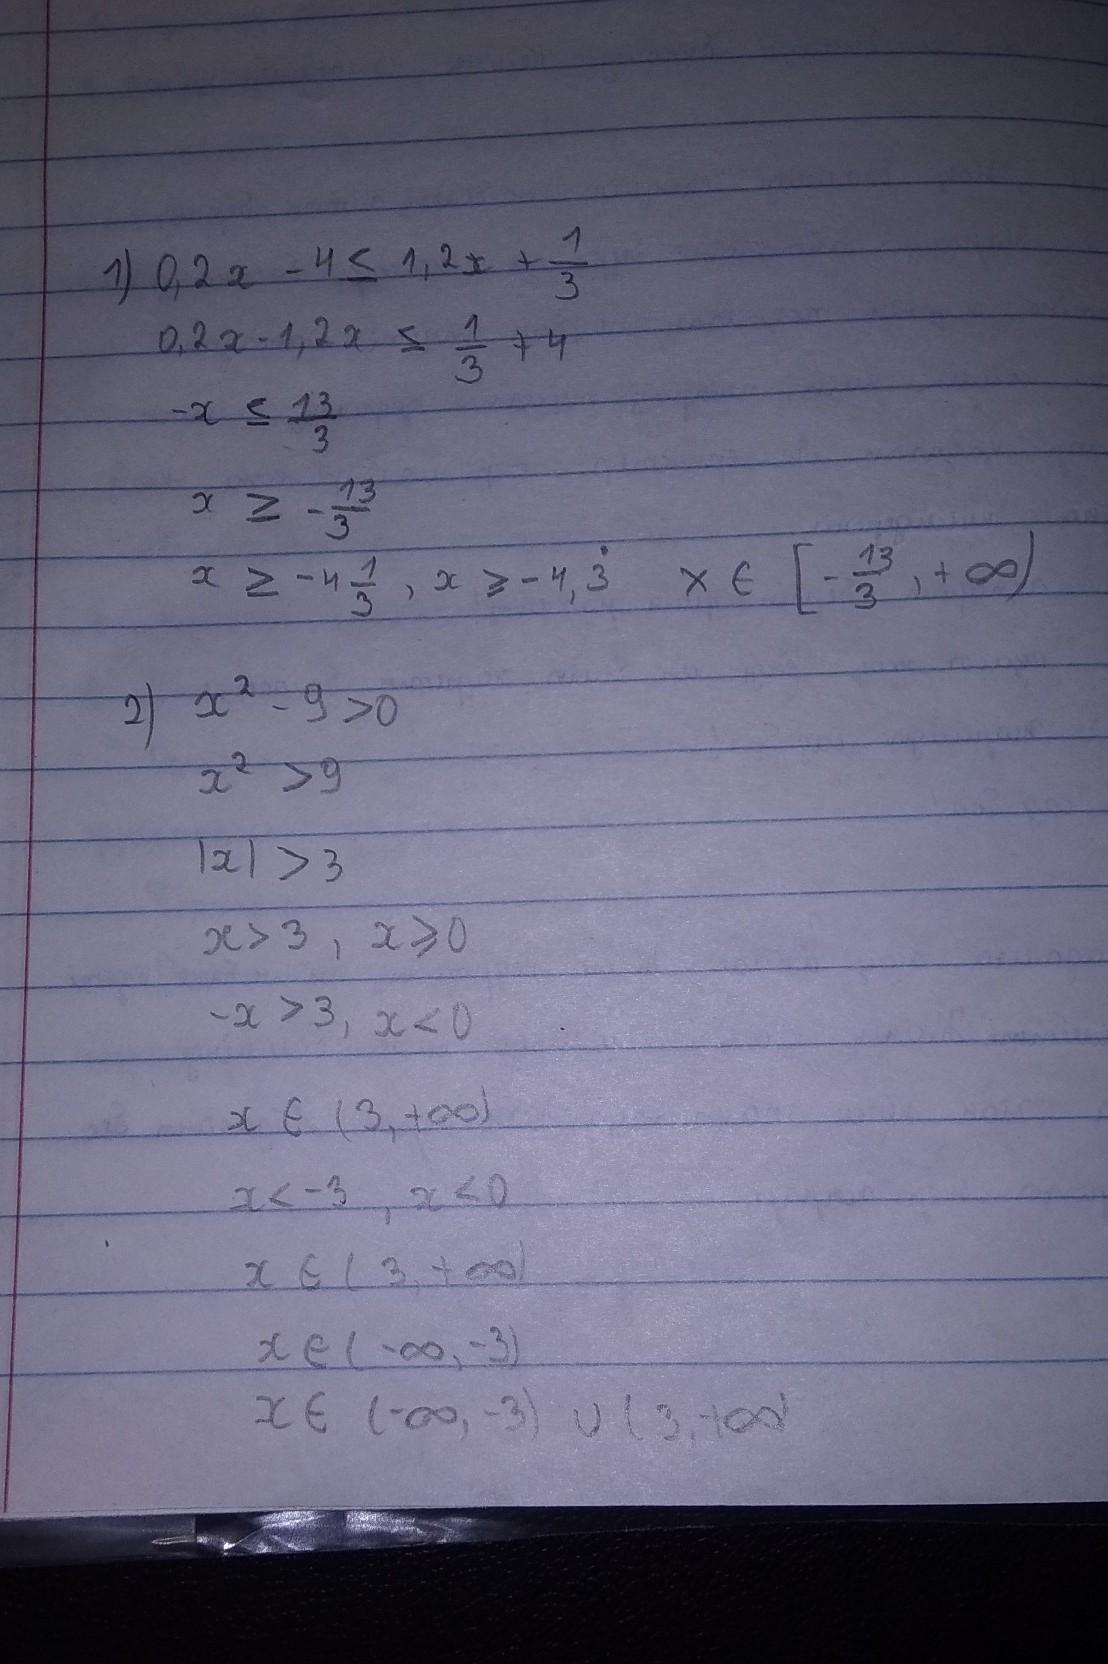 1) 0,2x - 4 ≤ 1,2x + 1/3
0,2x - 1,2x ≤ 1/3 + 4
-x ≤ 13/3
x ≥ -13/3
x ≥ -4 1/3, x ⩾ -4,3̇ x ∈ [-13/3, +∞)
2) x² - 9 > 0
x² > 9
|x| > 3
x > 3, x ⩾ 0
-x > 3, x < 0
x ∈ (3, +∞)
x < -3, x < 0
x ∈ (3, +∞)
x ∈ (-∞, -3)
x ∈ (-∞, -3) ∪ (3, +∞)